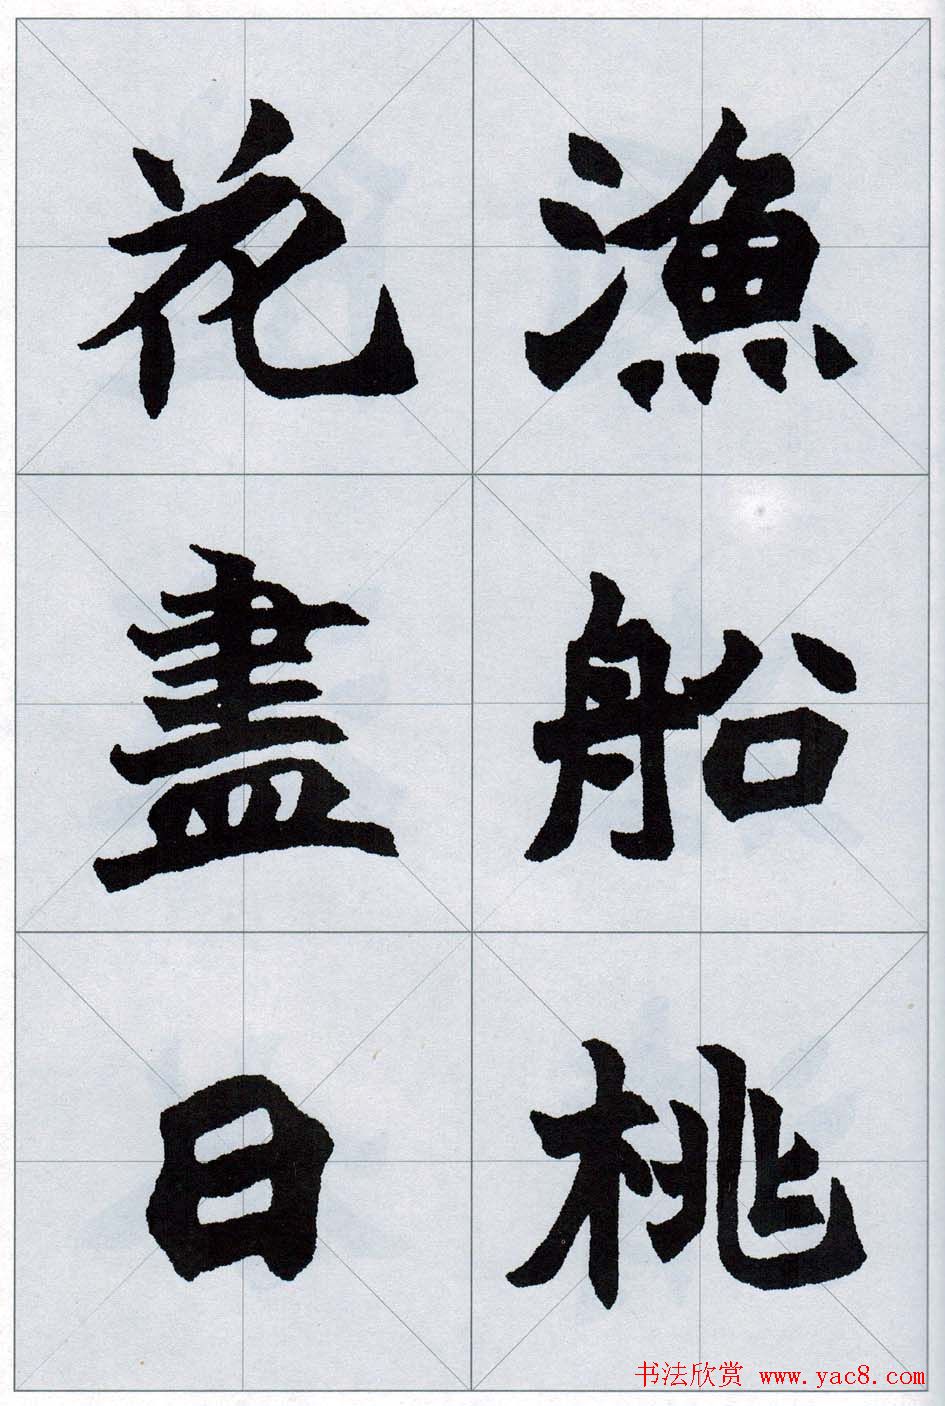 漁船桃
花盡日
书法欣赏 www.yac8.com